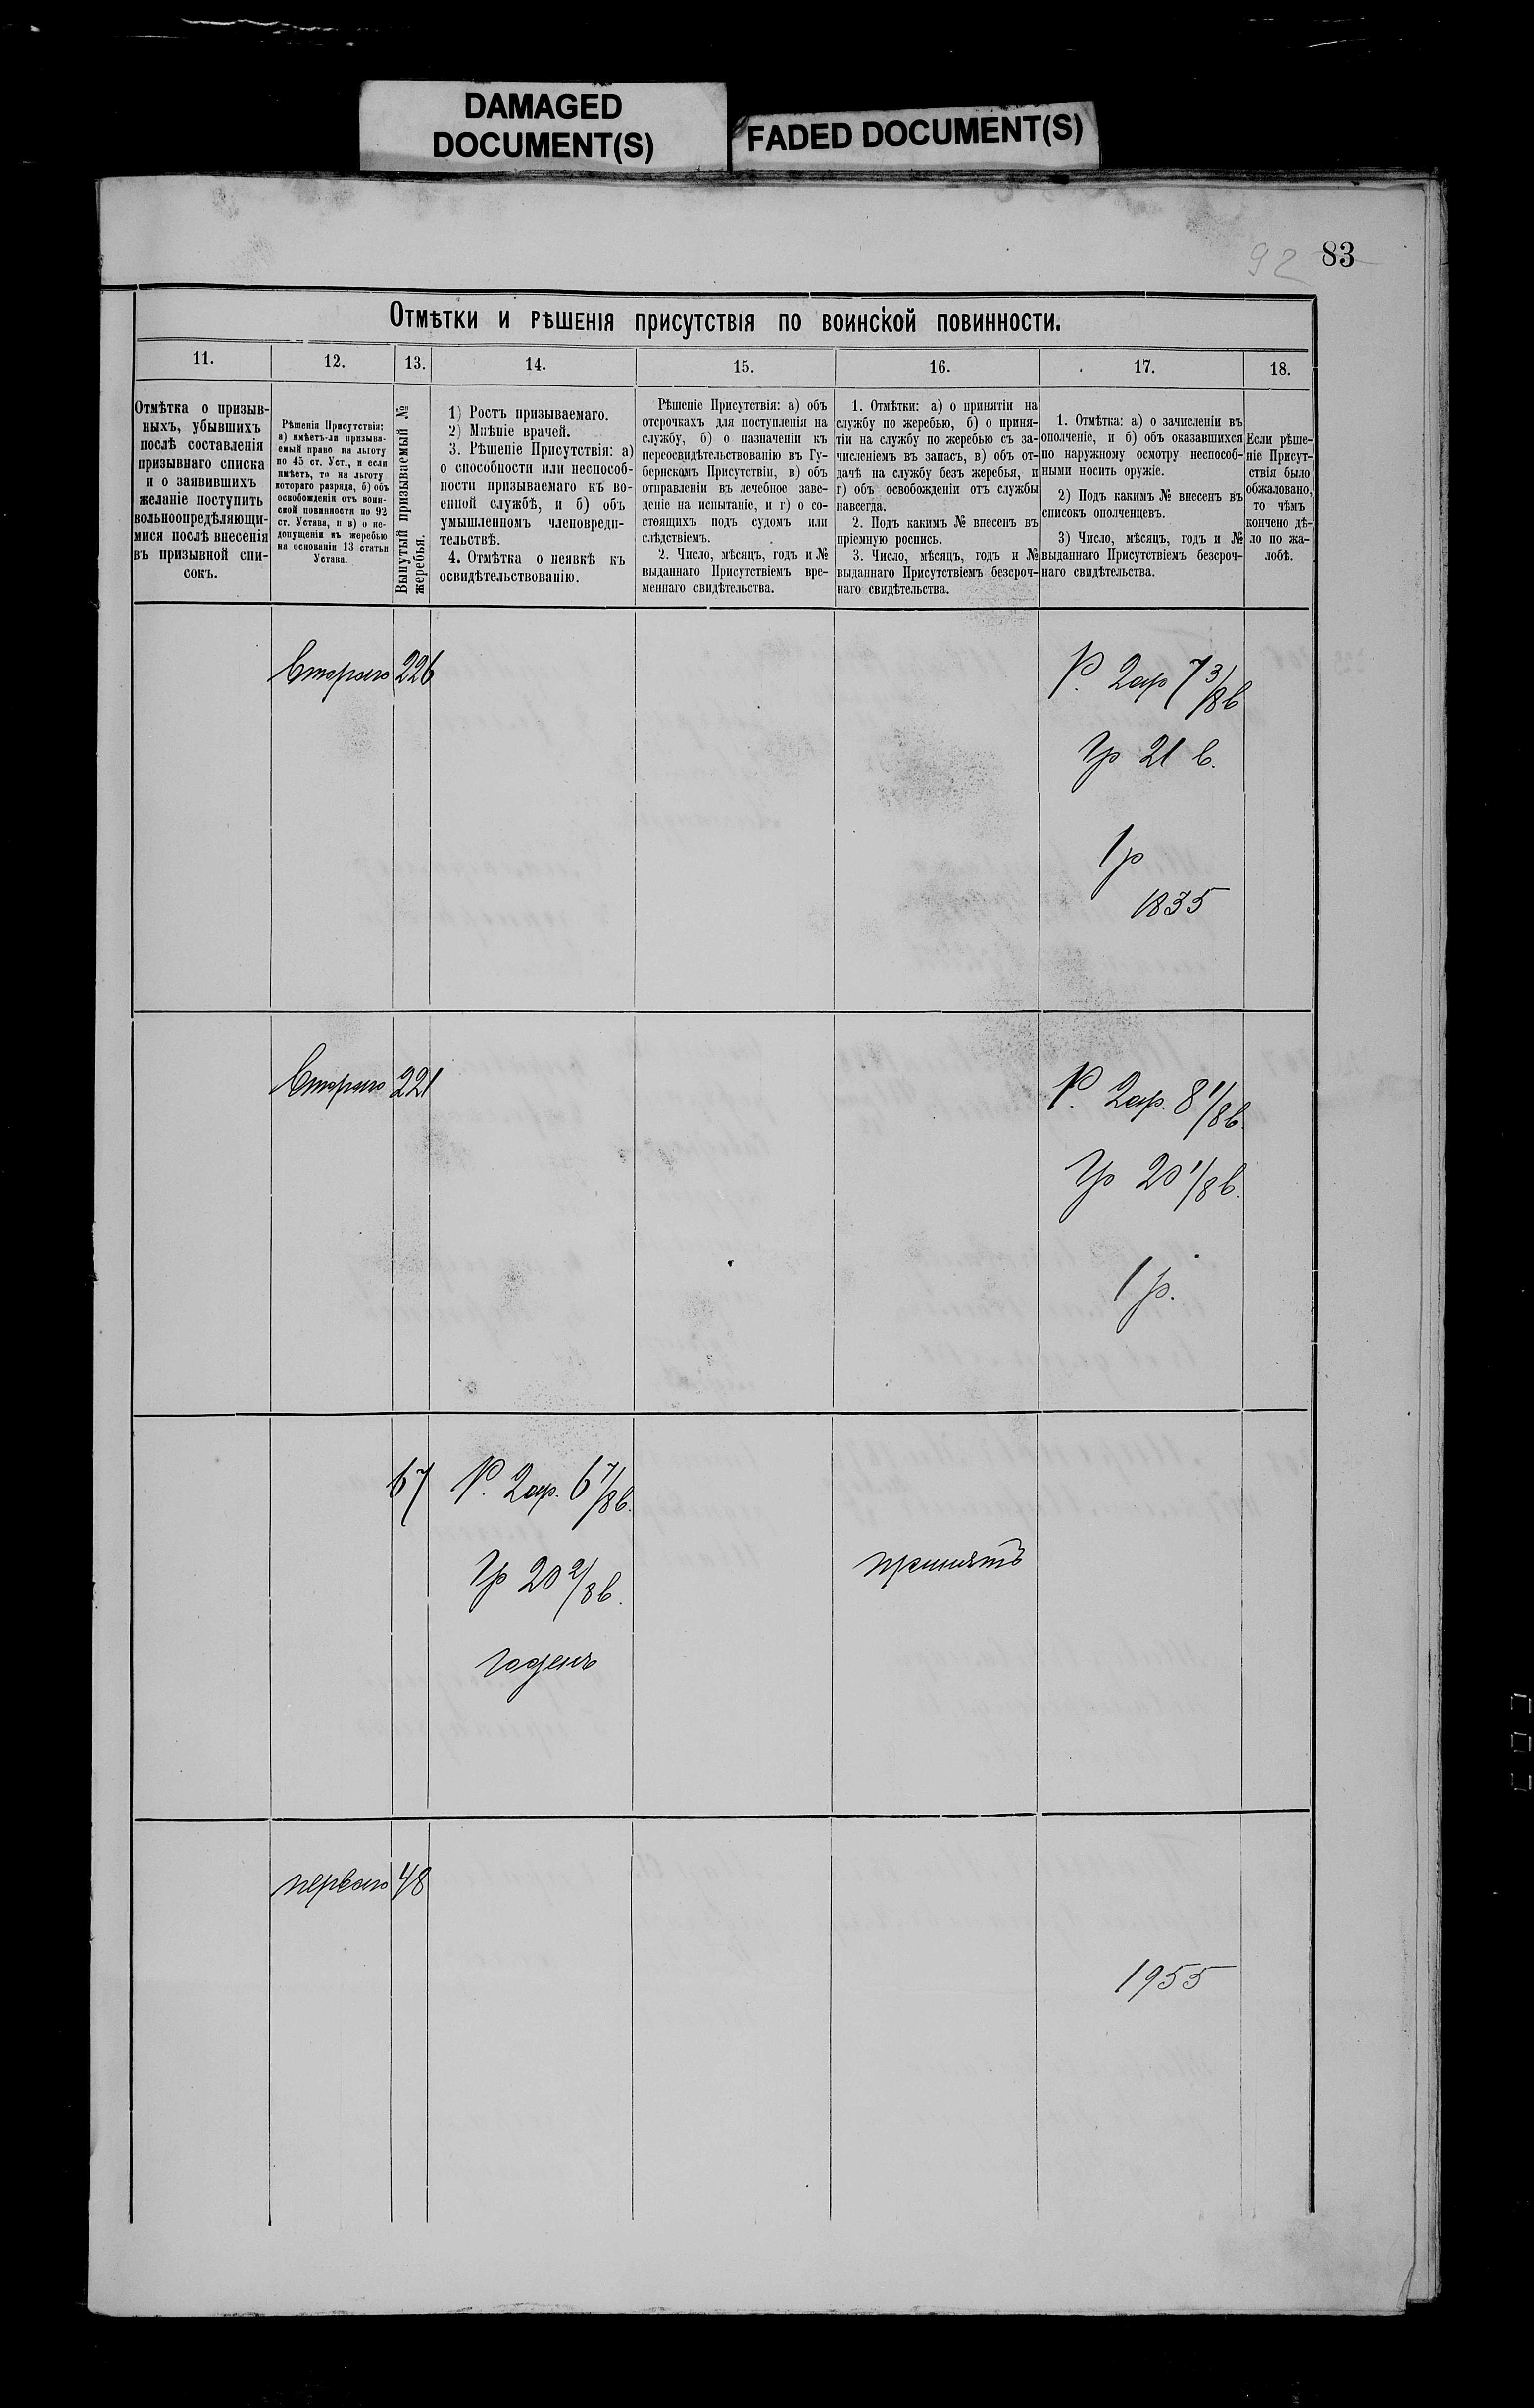 DAMAGED
DOCUMENT(S)
FADED DOCUMENT(S)
92 83
Отмѣтки и рѣшенія присутствія по воинской повинности.
11.
12.
13.
14.
15.
16.
17.
18.
Отмѣтка о призыв-
ныхъ, убывшихъ
послѣ составленія
призывнаго списка
и о заявившихъ
желаніе поступить
вольноопредѣляющи-
мися послѣ внесенія
въ призывной спи-
сокъ.
Рѣшенія Присутствія:
а) имѣетъ-ли призыва-
емый право на льготу
по 45 ст. Уст., и если
имѣетъ, то на льготу
котораго разряда, б) объ
освобожденіи отъ воин-
ской повинности по 92
ст. Устава, и в) о не-
допущеніи къ жеребью
на основаніи 13 статьи
Устава.
Вынутый призываемый №
жеребья.
1) Ростъ призываемаго.
2) Мнѣніе врачей.
3. Рѣшеніе Присутствія: а)
о способности или неспособ-
ности призываемаго къ во-
енной службѣ, и б) объ
умышленномъ членовреди-
тельствѣ.
4. Отмѣтка о неявкѣ къ
освидѣтельствованію.
Рѣшеніе Присутствія: а) объ
отсрочкахъ для поступленія на
службу, б) о назначеніи къ
переосвидѣтельствованію въ Гу-
бернскомъ Присутствіи, в) объ
отправленіи въ лечебное заве-
деніе на испытаніе, и г) о со-
стоящихъ подъ судомъ или
слѣдствіемъ.
2. Число, мѣсяцъ, годъ и №
выданнаго Присутствіемъ вре-
меннаго свидѣтельства.
1. Отмѣтки: а) о принятіи на
службу по жеребью, б) о приня-
тіи на службу по жеребью съ за-
численіемъ въ запасъ, в) объ от-
дачѣ на службу безъ жеребья, и
г) объ освобожденіи отъ службы
навсегда.
2. Подъ какимъ № внесенъ въ
пріемную роспись.
3. Число, мѣсяцъ, годъ и №
выданнаго Присутствіемъ безсроч-
наго свидѣтельства.
1. Отмѣтка: а) о зачисленіи въ
ополченіе, и б) объ оказавшихся
по наружному осмотру неспособ-
ными носить оружіе.
2) Подъ какимъ № внесенъ въ
списокъ ополченцевъ.
3) Число, мѣсяцъ, годъ и №
выданнаго Присутствіемъ безсроч-
наго свидѣтельства.
Если рѣше-
ніе Присут-
ствія было
обжаловано,
то чѣмъ
кончено дѣ-
ло по жа-
лобѣ.
Втораго 226 Р. 2ар 7 3/8 в
Гр 21 в.
1 р
1835
Втораго 221 Р. 2ар. 8 1/8 в.
Гр 20 1/8 в.
1 р.
67 Р. 2ар. 6 7/8 в.
Гр 20 2/8 в.
принятъ
годенъ
перваго 48
1955